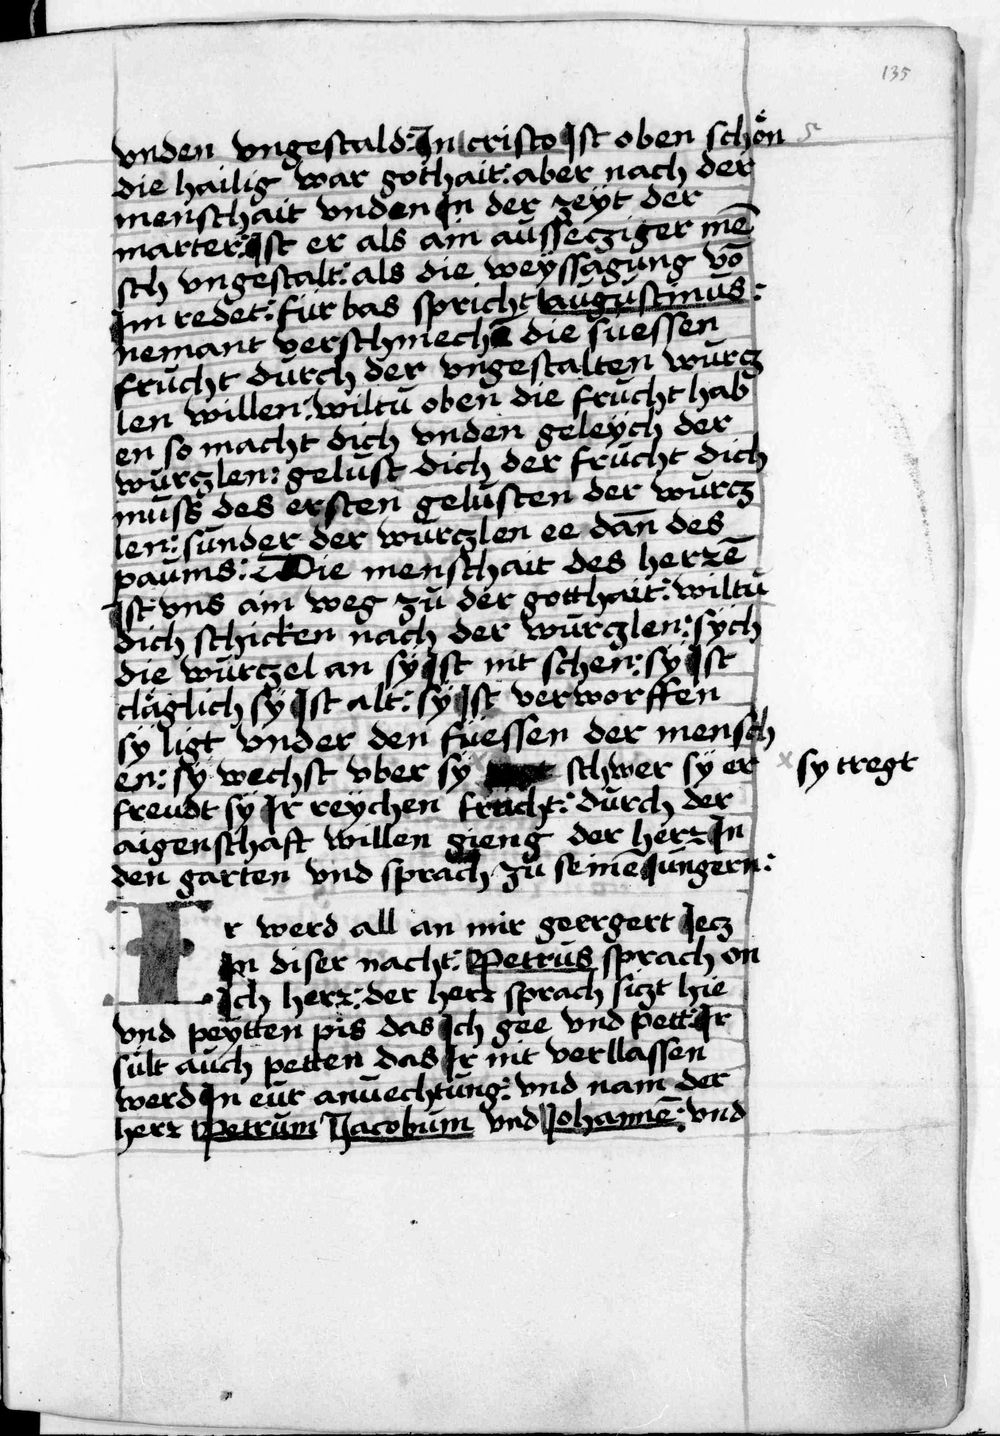 135
vnden vngestald: In cristo Ist oben schön
die hailig war gothait: aber nach der
menschait vnden In der zeyt der
marter: Ist er als ain aussecziger mē
sch vngestalt: als die weyssagung vō
Im redet: fur bas spricht augustinus:
nemant verschmech die suessen
frucht durch der vngestalten wurcz
len willen: wiltu oben die frucht hab
en so macht dich vnden geleych der
wurczlen: gelust dich der frucht dich
muss des ersten gelusten der wurcz
len: sunder der wurczlen ee dañ des
paums: Die menschait des herrē
Ist vns ain weg zu der gotthait: wiltu
dich schicken nach der wurczlen: sych
die wurczel an sy Ist nit schen: sy Ist
cläglich sy Ist alt: sy Ist verworffen
sy ligt vnder den fuessen der mensch
en: sy wechst vber sy schwer sy er
x sy tregt
freudt sy Ir reychen frucht: durch der
aigenschaft willen gieng der herr In
den garten vnd sprach zu seinē Iungern:
Ir werd all an mir geergert Iecz
In diser nacht: Petrus sprach on
Ich herr: der herr sprach siczt hie
vnd peytten pis das Ich gee vnd pett: Ir
sult auch petten das Ir nit verllassen
werd In eur anuechtung: vnd nam der
herr Petrum Iacobum vnd Johannē: vnd